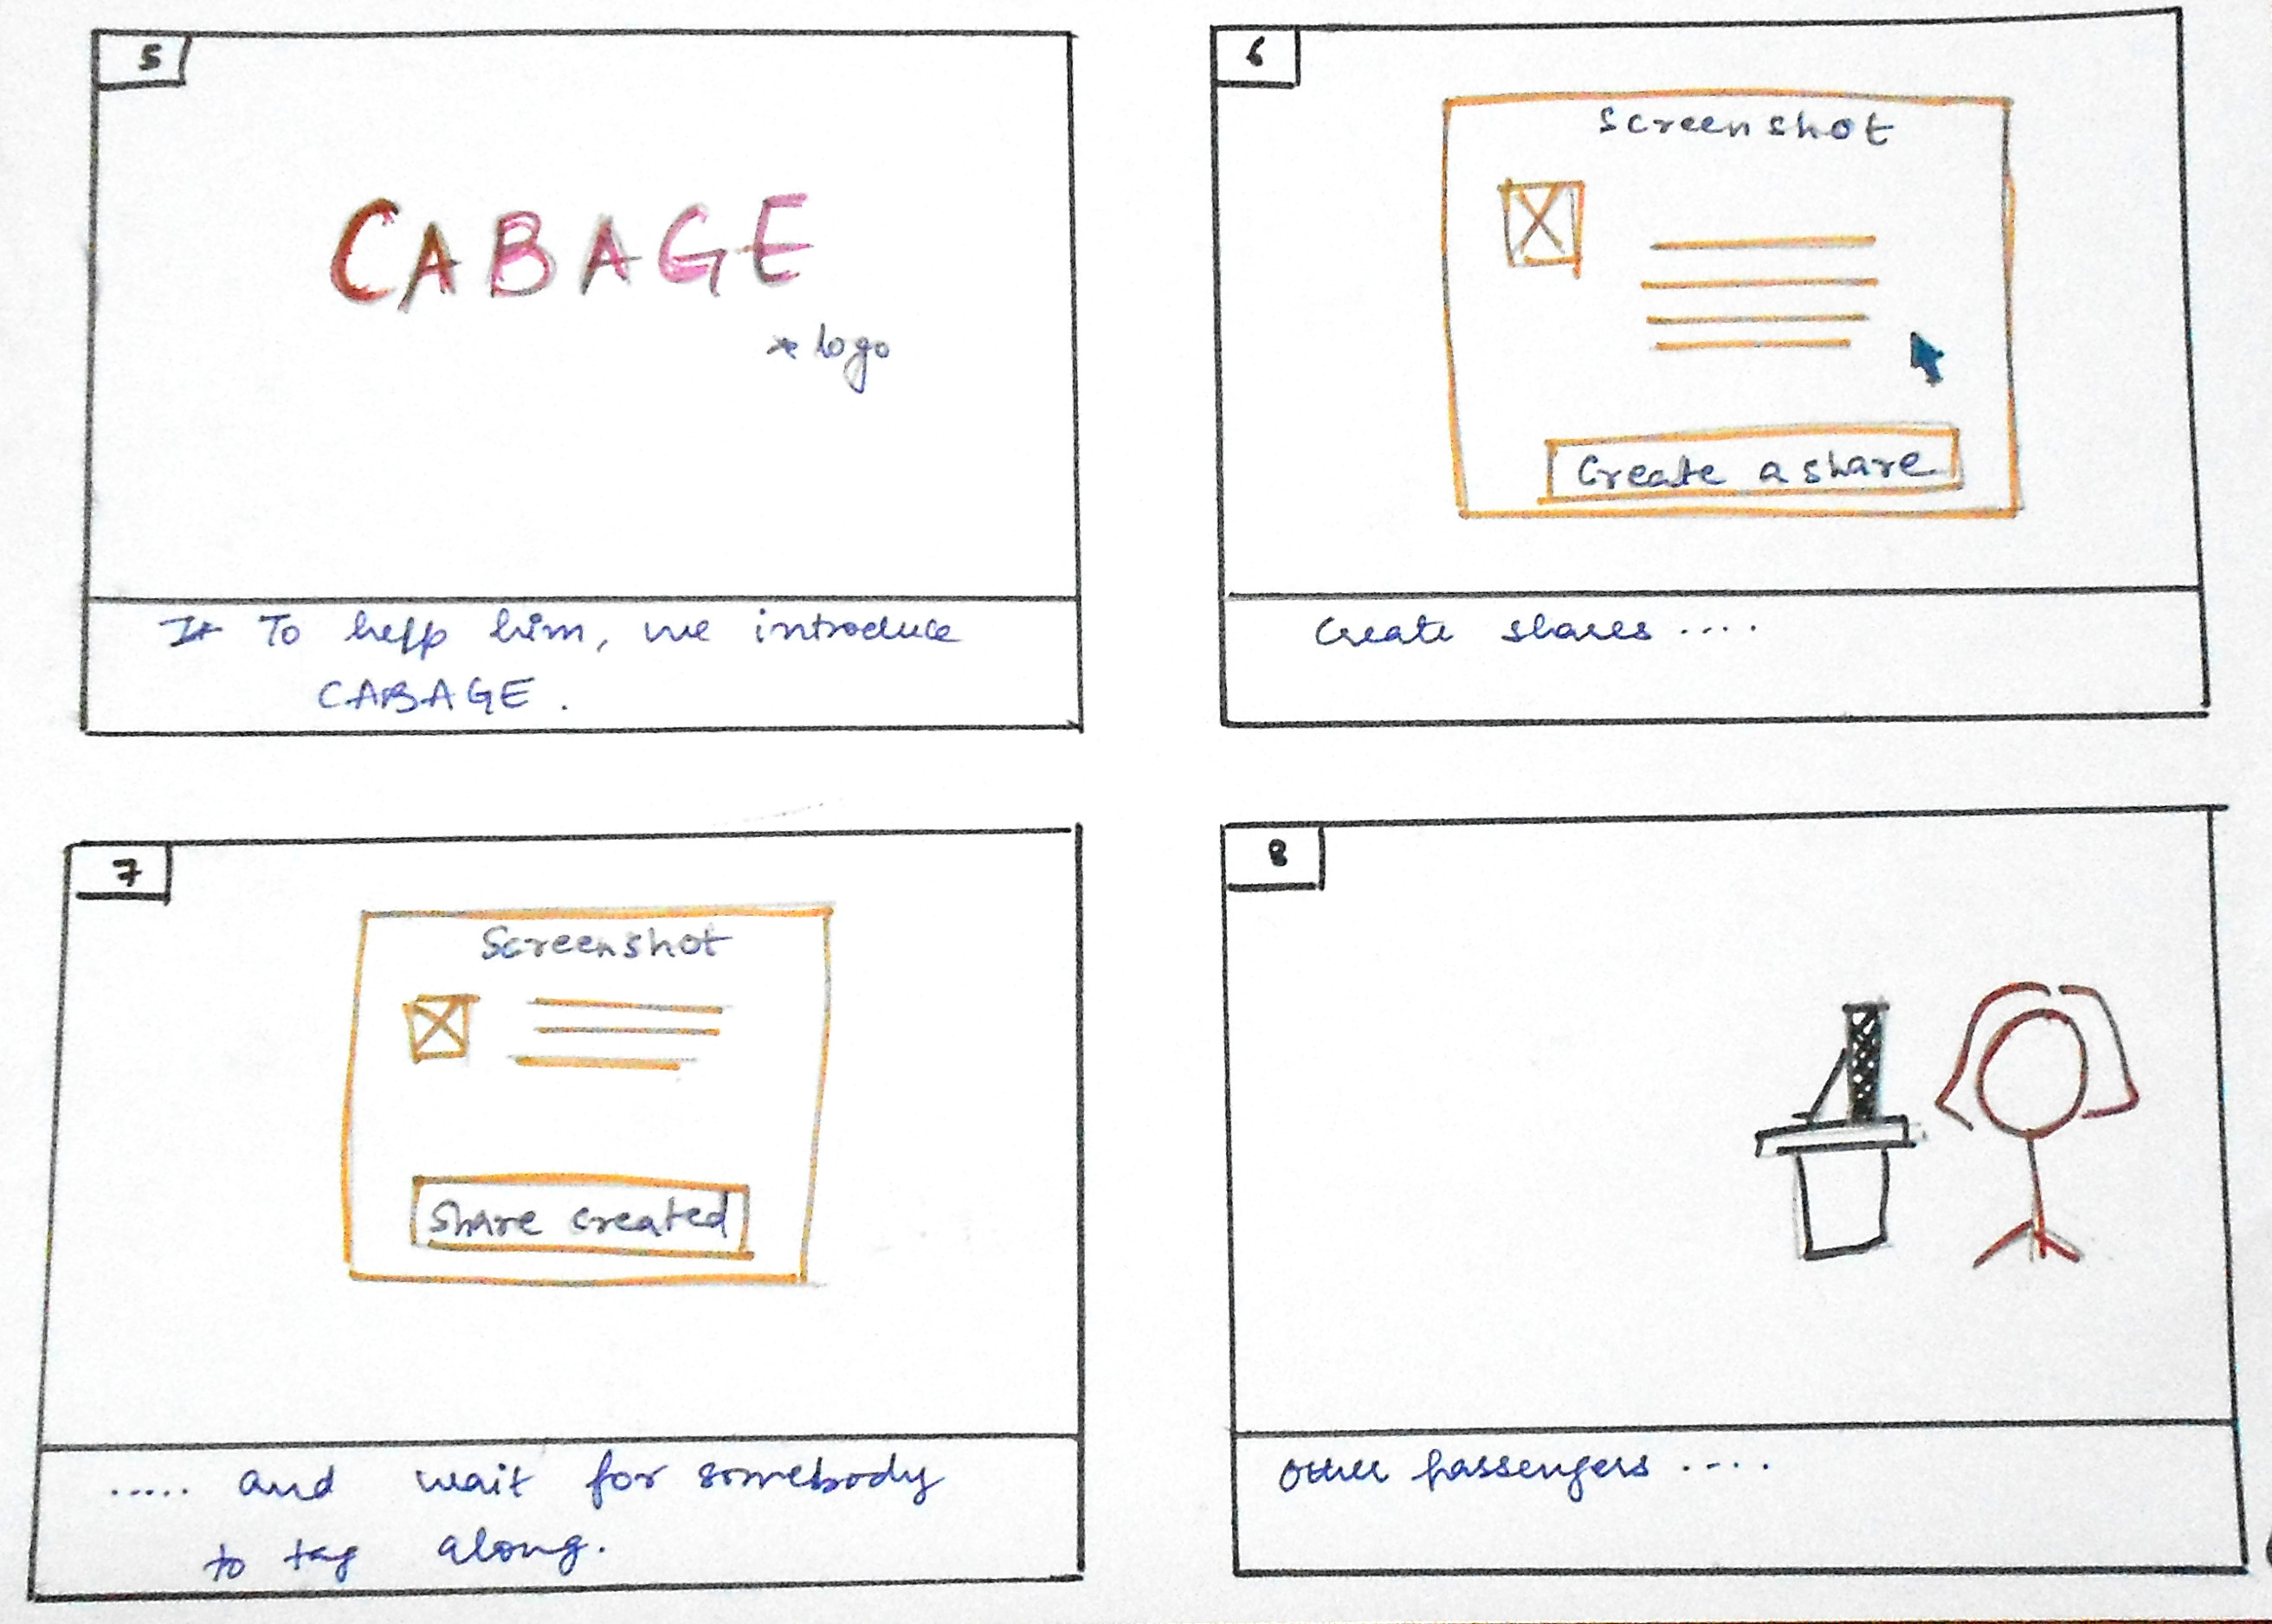 5
CABAGE
* logo
To help him, we introduce
CABAGE.
6
Screenshot
Create a share
Create shares ....
7
Screenshot
Share created
..... and wait for somebody
to tag along.
8
Other passengers ....